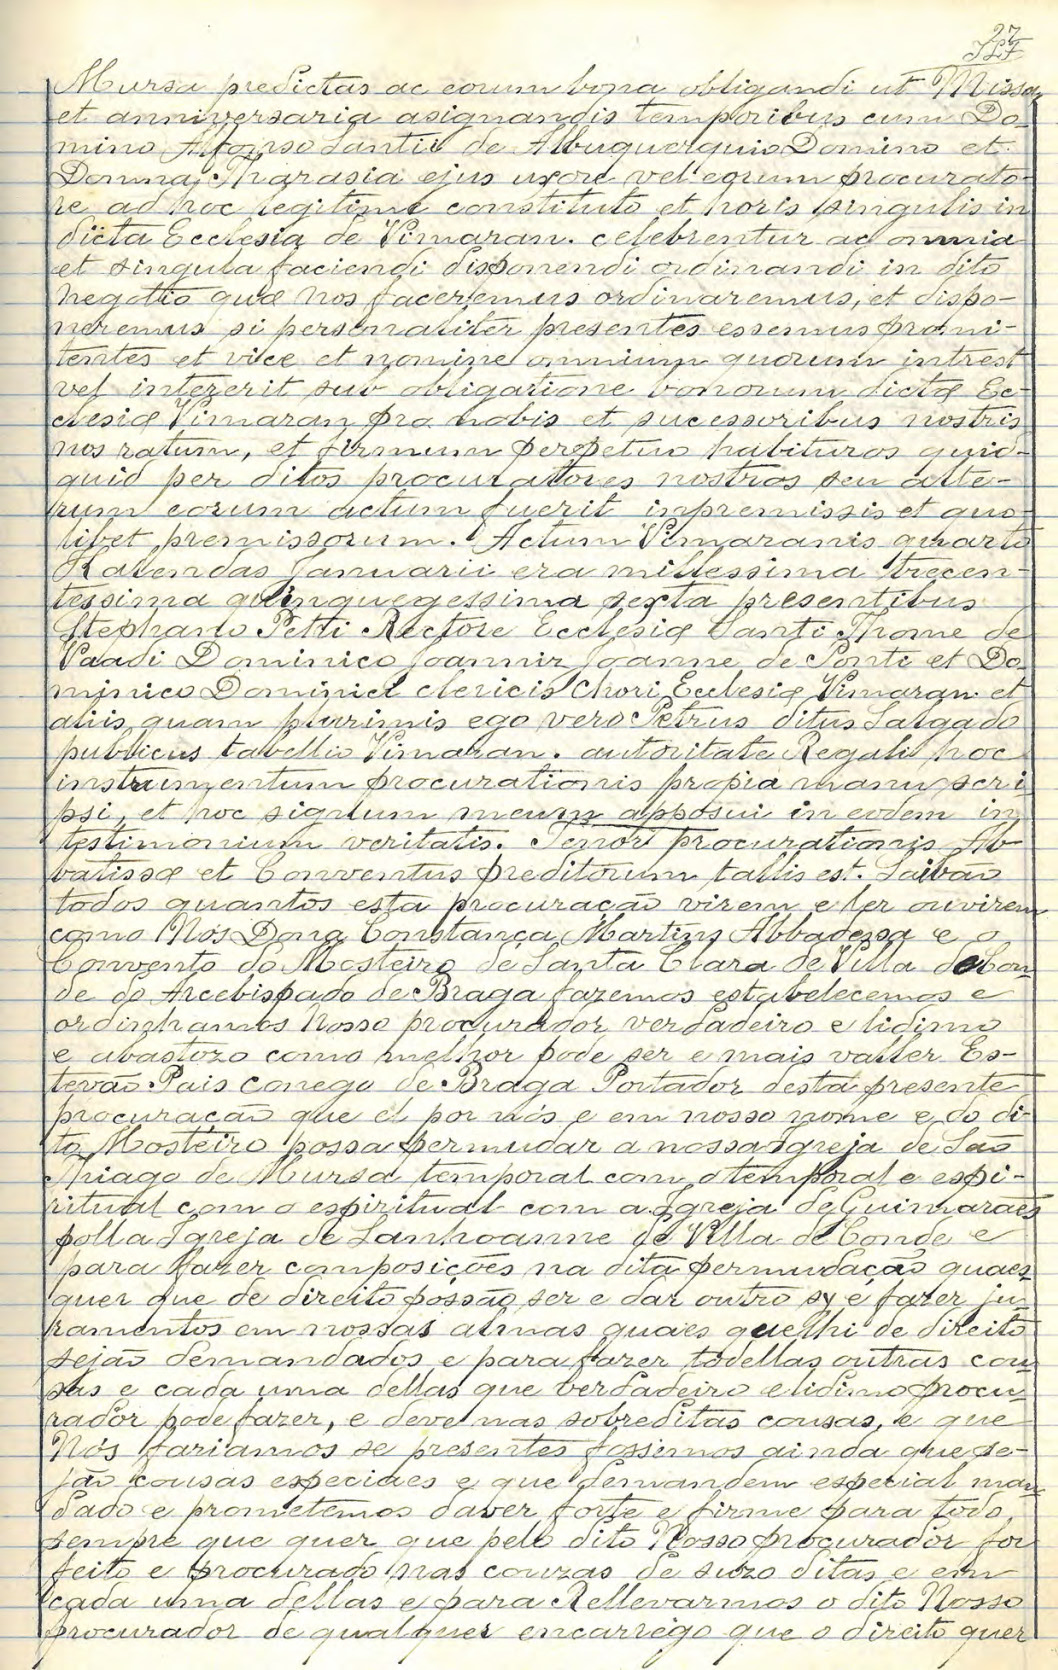 27
Mursa predictas ac eorum bona obligandi ut Missa
et anniversaria asignandis temporibus cum Do-
mino Afonso Santii de Albuquerquio Domino et
Domna Tharasia ejus uxore vel eorum procurato-
re ad hoc legitime constituto et horis singulis in
dicta Ecclesia de Vimaran. celebrentur ac omnia
et singula faciendi disponendi ordinandi in dito
negotio quæ nos faceremus ordinaremus, et dispo-
neremus si personaliter presentes essemus promi-
tentes et vice et nomine omnium quorum intrest
vel intererit sub obligatione bonorum dictæ Ec-
clesiæ Vimaran pro nobis et sucessoribus nostris
nos ratum, et firmum perpetuo habituros quid-
quid per ditos procuratores nostros seu alte-
rum eorum actum fuerit inpremissis et quo-
libet premissorum. Actum Vimaranis quarto
Kalendas Januarii era millessima trecen-
tessima quinquegessima sexta presentibus
Stephano Petri Rectore Ecclesiæ Santi Thome de
Vaadi Dominico Joanniz Joanne de Ponte et Do-
minico Dominici clericis Chori Ecclesiæ Vimaran. et
aliis quam plurimis ego vero Petrus ditus Salgado
publicus tabellio Vimaran. autoritate Regali hoc
instrumentum procurationis propia manu scri
psi, et hoc signum meum apposui in eodem in
testimonium veritatis. Tenor procurationis Ab-
batissæ et Conventus preditorum tallis est. Saibão
todos quantos esta procuração virem e ler ouvirem
como Nós Dona Constança Martins Abbadessa e o
Convento do Mosteiro de Santa Clara de Villa do Con-
de do Arcebispado de Braga fazemos estabelecemos e
ordinhamos Nosso procurador verdadeiro e lidimo
e abastozo como melhor pode ser e mais valler Es-
tevão Pais conego de Braga Portador desta presente
procuração que el por nós e em nosso nome e do di-
to Mosteiro possa permudar a nossa Igreja de São
Thiago de Mursa temporal com o temporal e espi-
ritual com o espiritual com a Igreja de Guimarães
polla Igreja de Sanhoanne de Villa de Conde e
para fazer composições na dita permudação quaes
quer que de direito possão ser e dar outro sy e fazer ju-
ramentos em nossas almas quaes quelhi de direito
sejão demandados e para fazer todellas outras cou-
sas e cada uma dellas que verdadeiro e lidimo procu-
rador pode fazer, e deve nas sobreditas cousas, e que
Nós fariamos se presentes fossemos ainda que se-
jão cousas especiaes e que demandem especial man-
dado e prometemos daver forte e firme para todo
sempre que quer que pelo dito Nosso procurador for
feito e procurado nas couzas de suzo ditas e em
cada uma dellas e para Rellevarmos o dito Nosso
procurador de qualquer encarrego que o direito quer